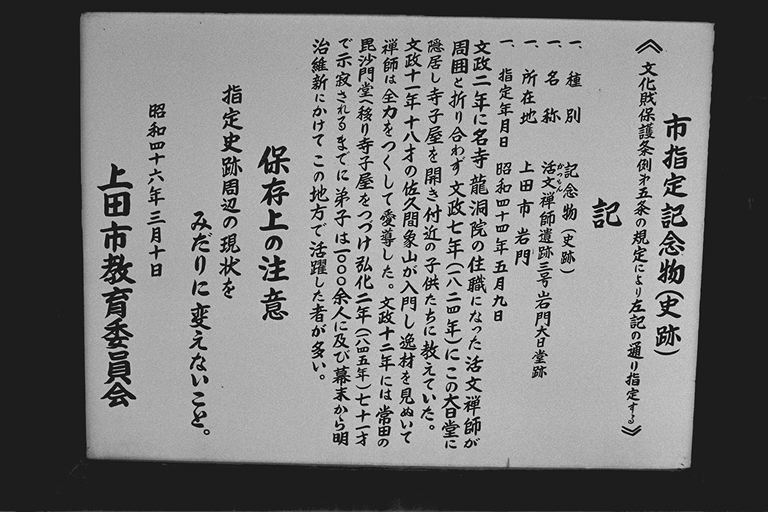 市指定記念物(史跡)
《文化財保護条例第五条の規定により左記の通り指定する》
記
一、種別 記念物(史跡)
一、名称 活文禅師遺跡三号岩門大日堂跡
かつもん
一、所在地 上田市岩門
一、指定年月日 昭和四十四年五月九日
文政二年に名寺龍洞院の住職になった活文禅師が
周囲と折り合わず文政七年(一八二四年)にこの大日堂に
隠居し寺子屋を開き付近の子供たちに教えていた。
文政十一年十八才の佐久間象山が入門し逸材を見ぬいて
禅師は全力をつくして愛導した。文政十二年には常田の
毘沙門堂へ移り寺子屋をつづけ弘化二年(一八四五年)七十一才
で示寂されるまでに弟子は一〇〇〇余人に及び幕末から明
治維新にかけてこの地方で活躍した者が多い。
保存上の注意
指定史跡周辺の現状を
みだりに変えないこと。
昭和四十六年三月十日
上田市教育委員会